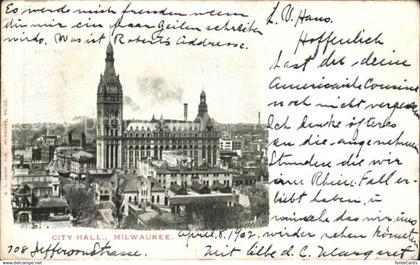 Es werde mich freuden wenn
du mir ein paar Zeilen schreiben
wird. Was ist Roberts Addresse.
L. V. Haus.
Hoffenlich
hast du deine
Americanische Cousine
noch nicht vergessen
Ich denke öfteres
an die angenehmen
Stunden die wir
im Rhein. Fall er
lebt haben, u
wünsche das wir uns
wieder sehen könnte
Mit liebe d. C. Margaret
CITY HALL, MILWAUKEE.
April, 8, 1902.
708 Jefferson Strasse.